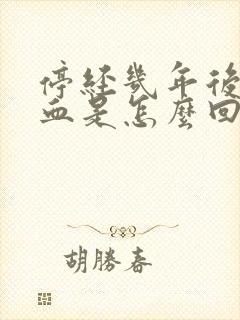 停經幾年後
血是怎麼回
胡勝春